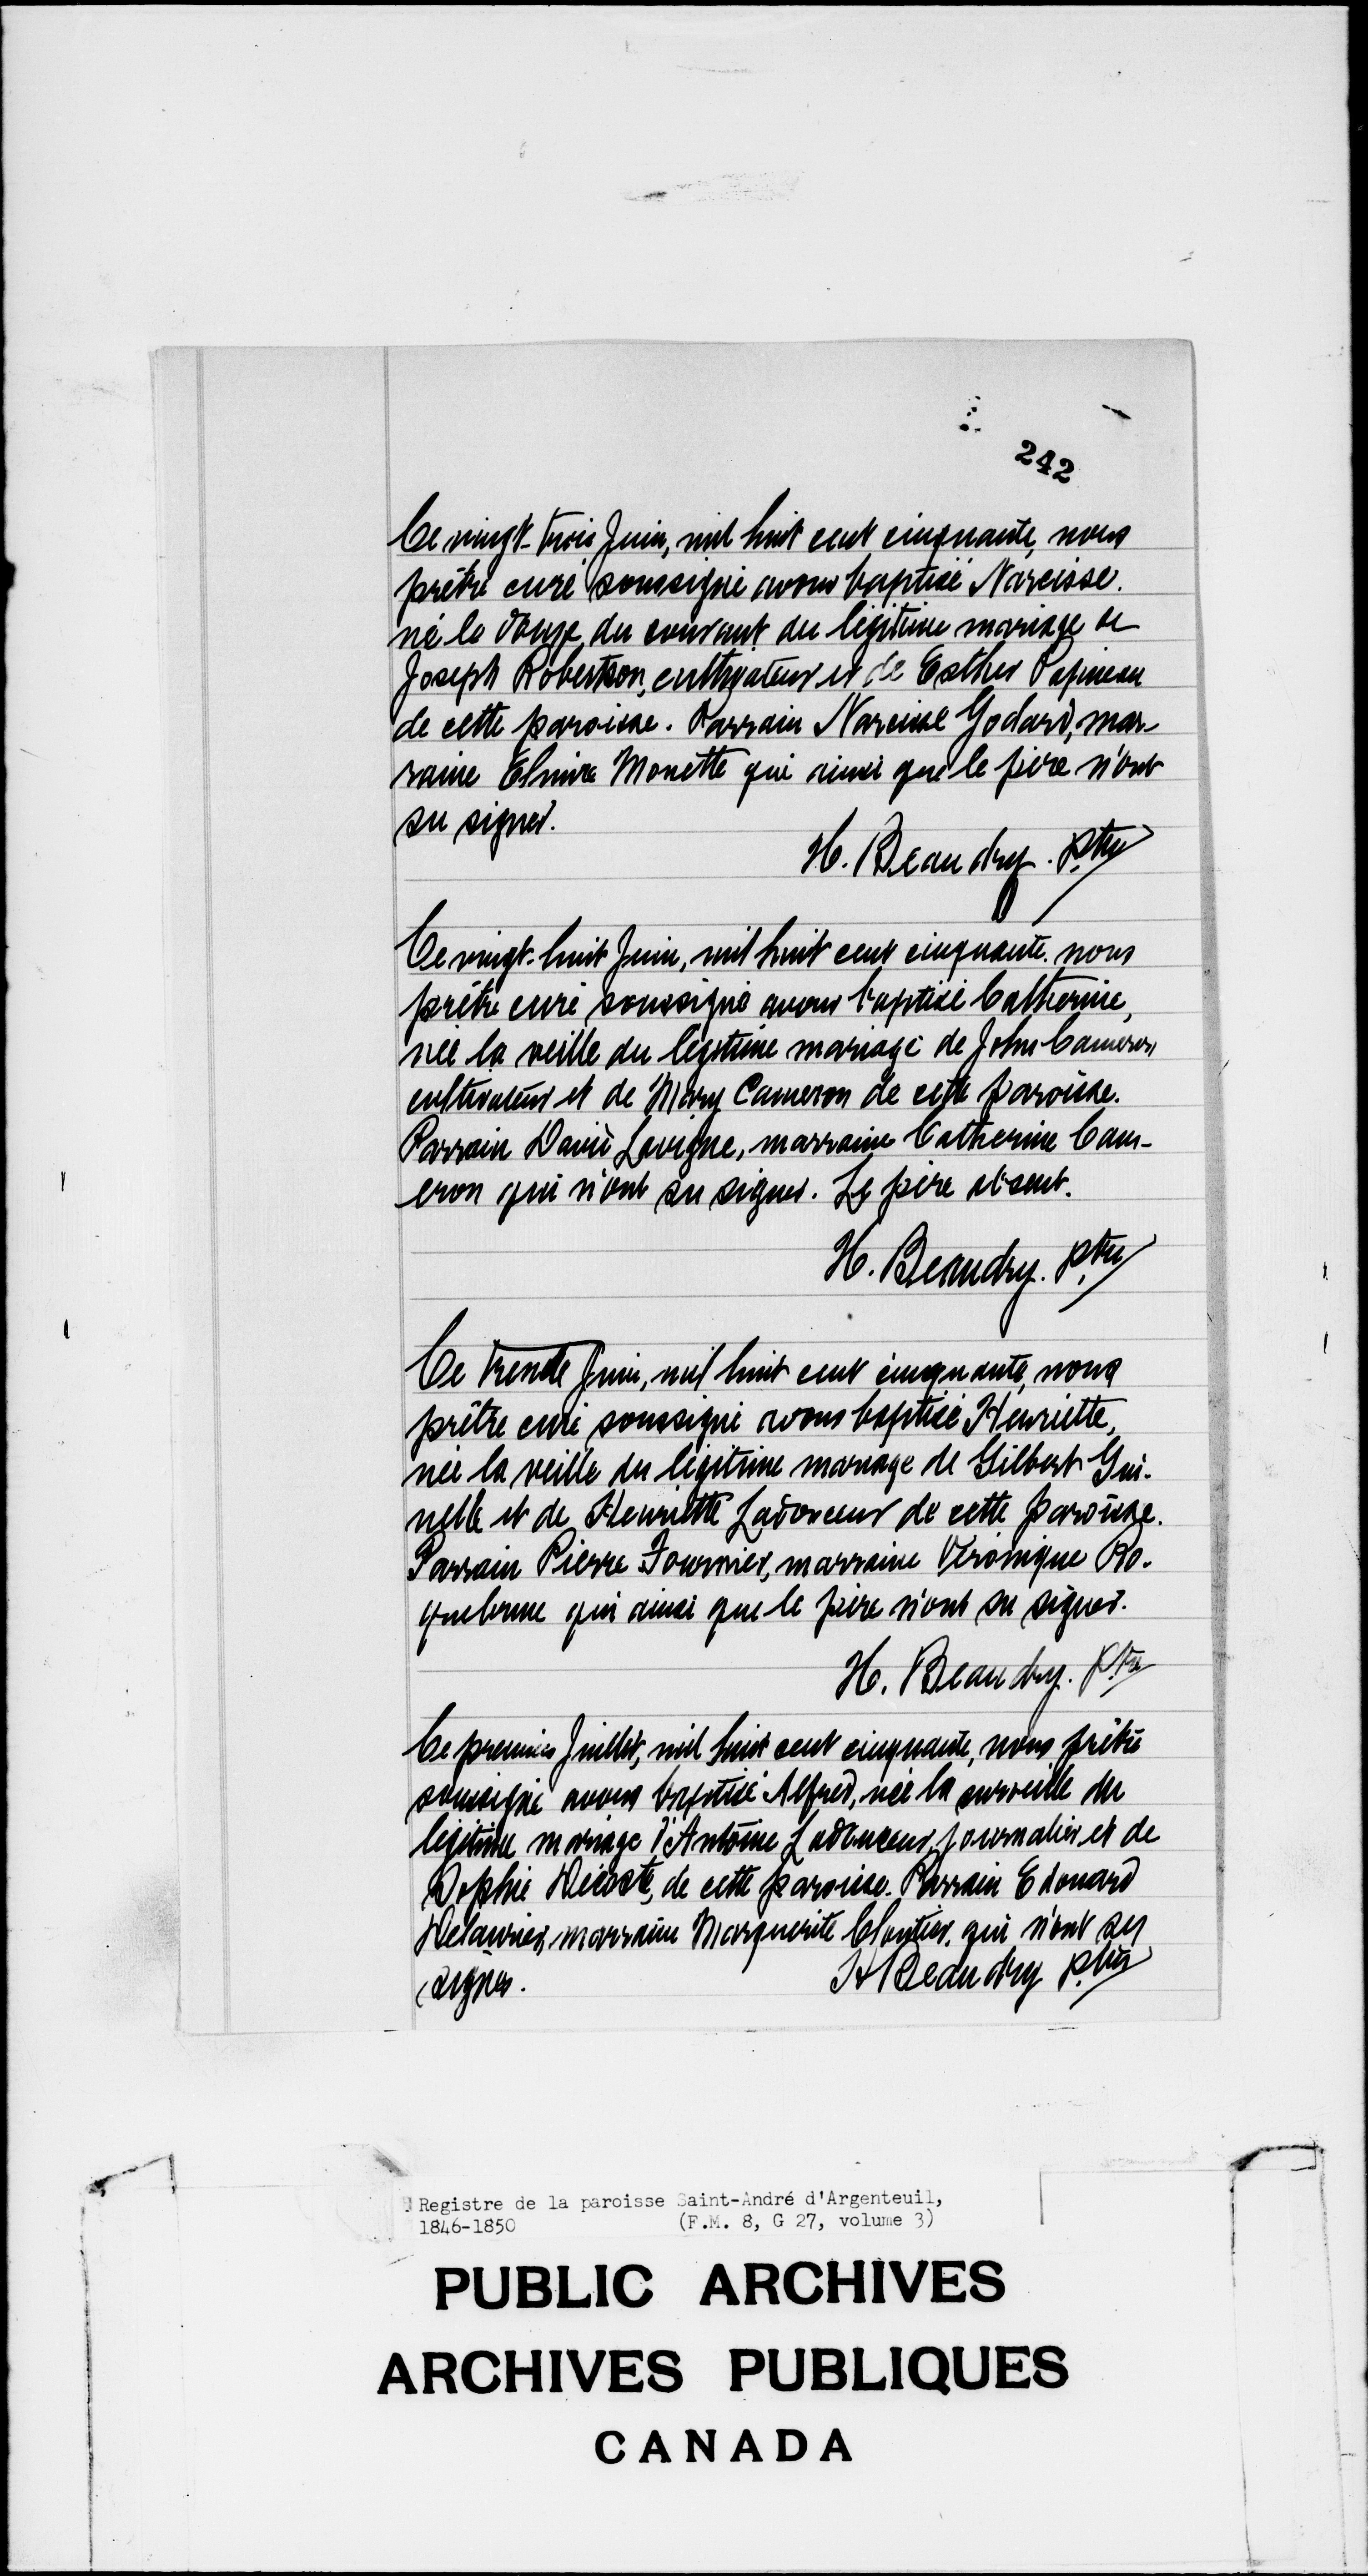 242
Ce vingt-trois Juin, mil huit cent cinquante, nous
prêtre curé soussigné avons baptisé Narcisse.
né le douze du courant du légitime mariage de
Joseph Robertson, cultivateur et de Esther Papineau
de cette paroisse. Parrain Narcisse Godard, mar-
raine Elmire Monette qui ainsi que le père n'ont
su signer.
H. Beaudry. ptre
Ce vingt-huit Juin, mil huit cent cinquante. nous
prêtre curé soussigné avons baptisé Catherine,
née la veille du légitime mariage de John Cameron
cultivateur et de Mary Cameron de cette paroisse.
Parrain David Lavigne, marraine Catherine Cam-
eron qui n'ont su signer. Le père absent.
H. Beaudry. ptre
Ce trente Juin, mil huit cent cinquante, nous
prêtre curé soussigné avons baptisé Henriette,
née la veille du légitime mariage de Gilbert Gui-
nelle et de Henriette Ladouceur de cette paroisse.
Parrain Pierre Fournier, marraine Véronique Ro-
quebrune qui ainsi que le père n'ont su signer.
H. Beaudry. ptre
Ce premier Juillet, mil huit cent cinquante, nous prêtre
soussigné avons baptisé Alfred, né la surveille du
légitime mariage d'Antoine Ladouceur, journalier et de
Sophie Décoste, de cette paroisse. Parrain Edouard
Delaurier, marraine Marguerite Cloutier, qui n'ont su
signer. H Beaudry ptre
Registre de la paroisse Saint-André d'Argenteuil,
1846-1850 (F.M. 8, G 27, volume 3)
PUBLIC ARCHIVES
ARCHIVES PUBLIQUES
CANADA